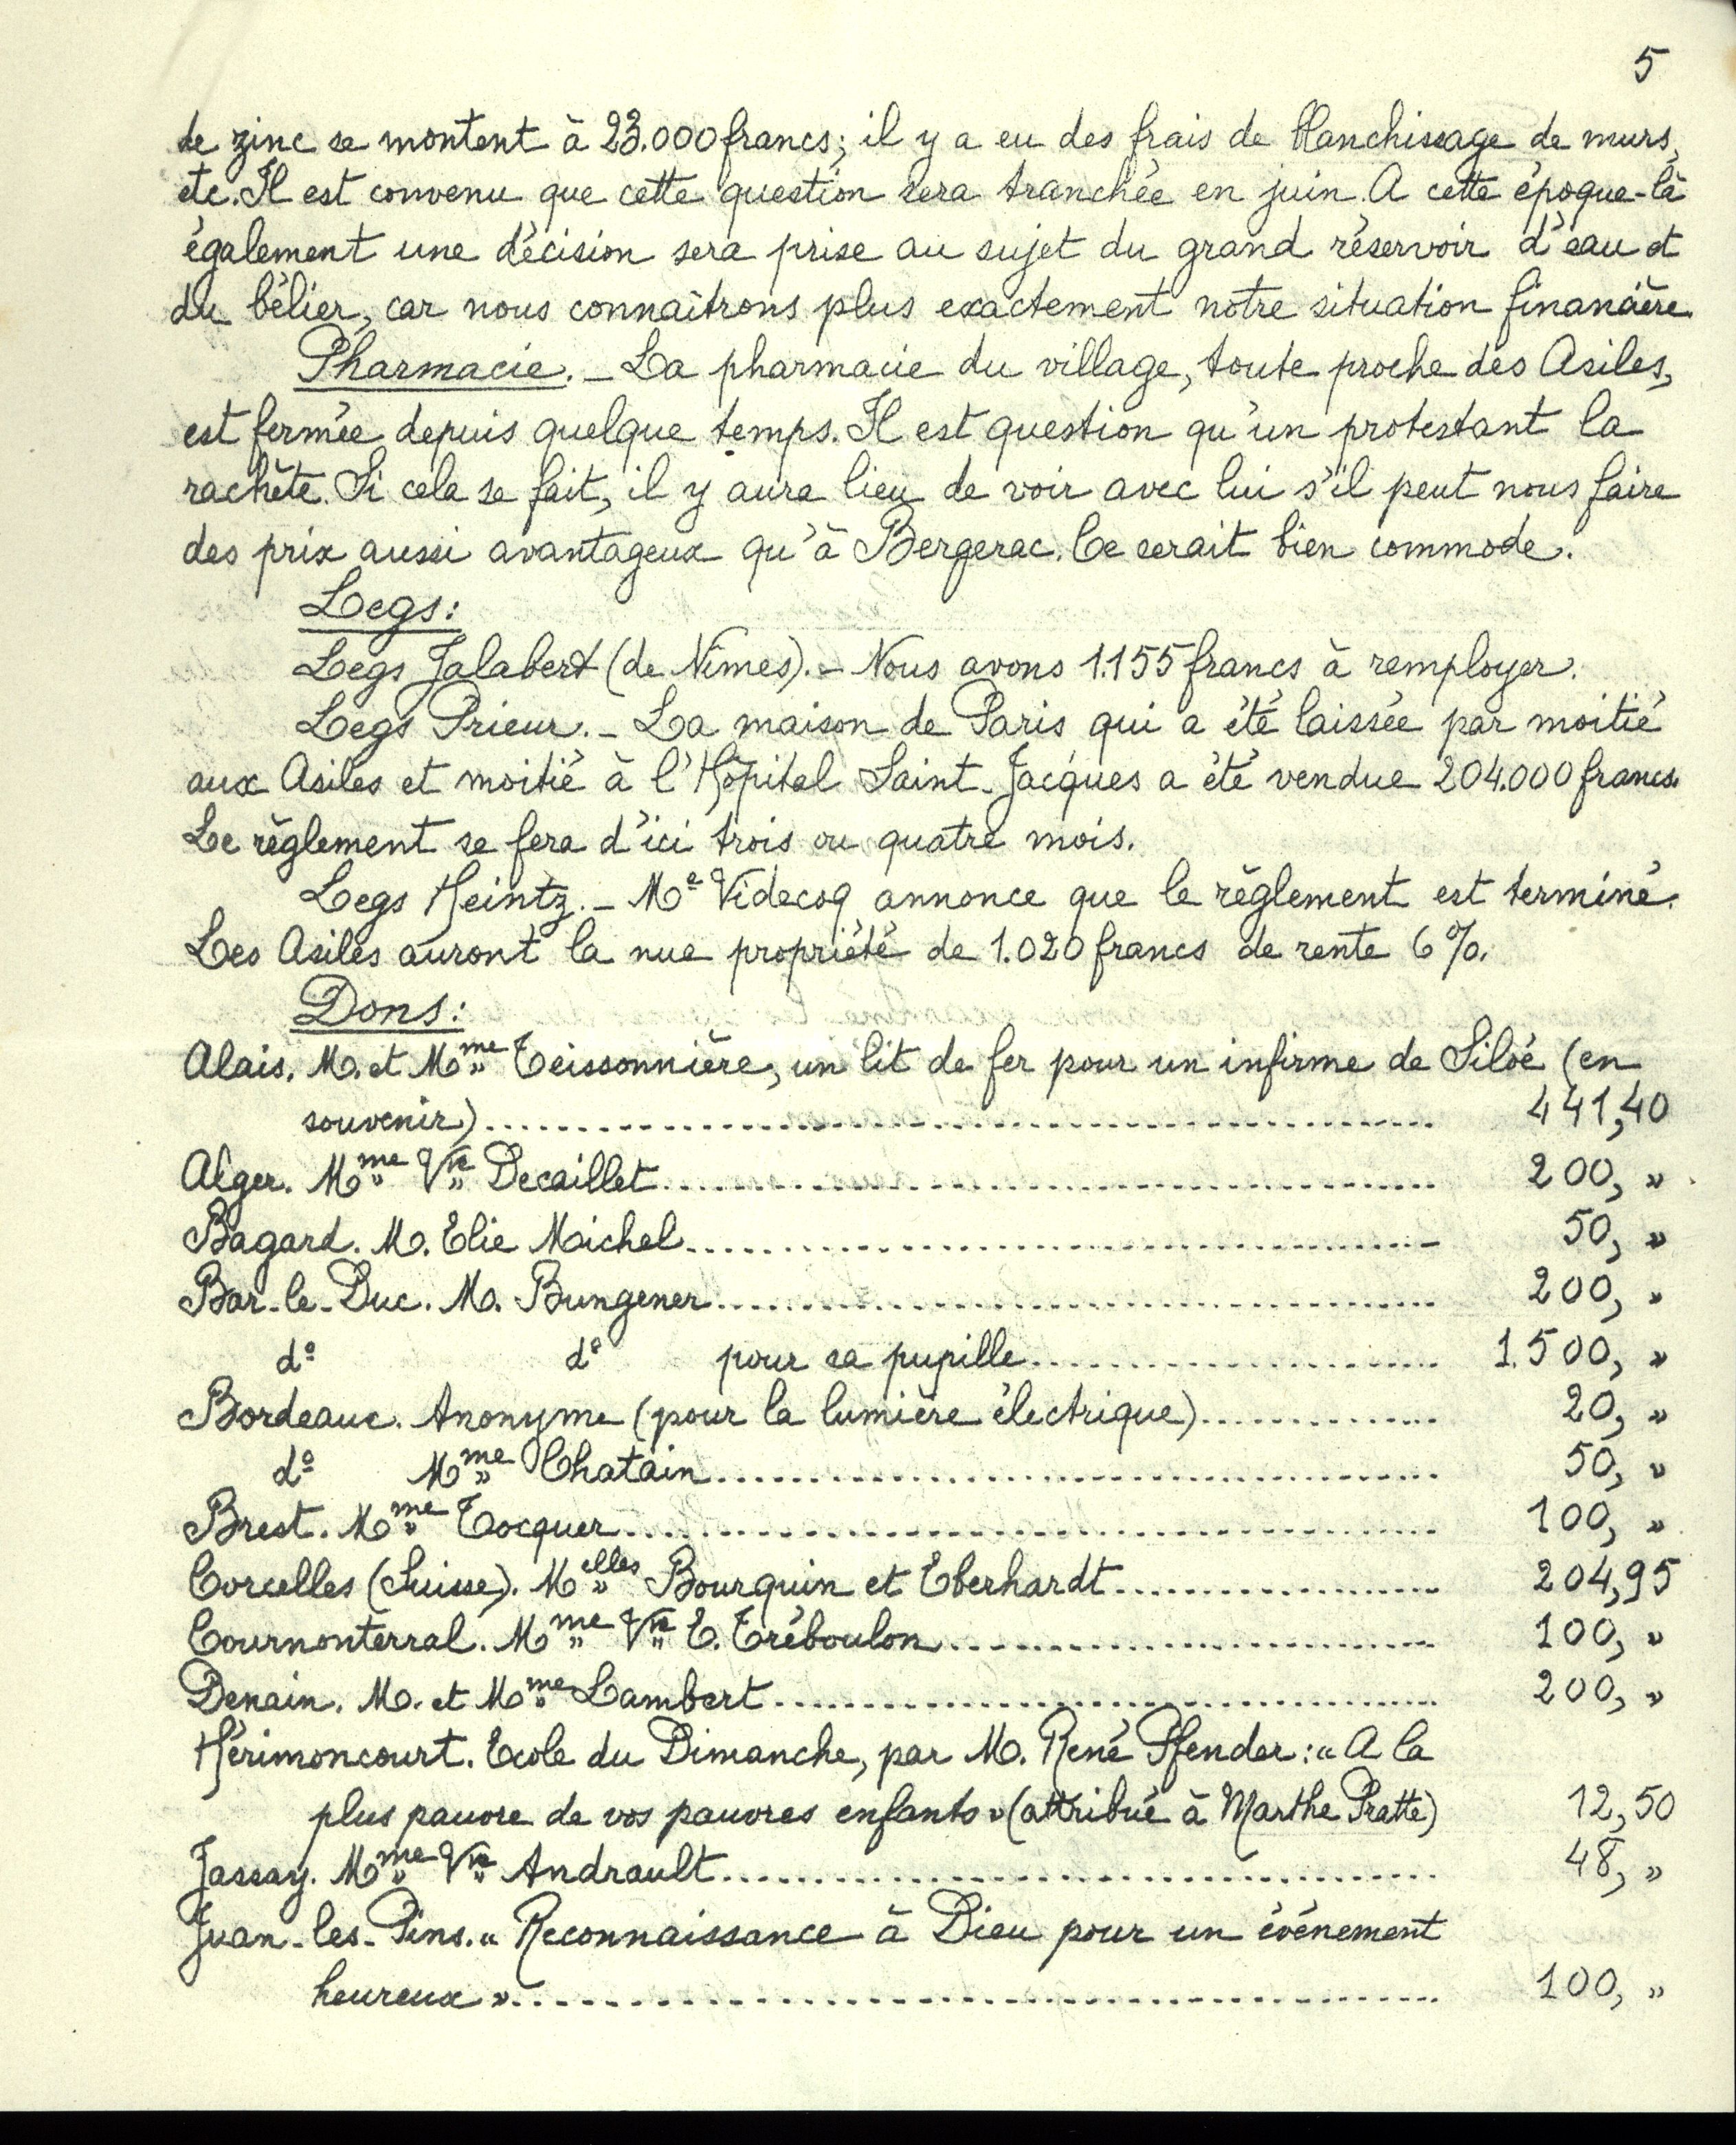 5
de zinc se montent à 23.000 francs; il y a eu des frais de blanchissage de murs,
etc. Il est convenu que cette question sera tranchée en juin. A cette époque-là
également une décision sera prise au sujet du grand réservoir d'eau et
du bélier, car nous connaîtrons plus exactement notre situation financière.
Pharmacie. _ La pharmacie du village, toute proche des Asiles,
est fermée depuis quelque temps. Il est question qu'un protestant la
rachète. Si cela se fait, il y aura lieu de voir avec lui s'il peut nous faire
des prix aussi avantageux qu'à Bergerac. Ce serait bien commode.
Legs:
Legs Jalabert (de Nîmes). _ Nous avons 1.155 francs à remployer.
Legs Prieur. _ La maison de Paris qui a été laissée par moitié
aux Asiles et moitié à l'Hôpital Saint-Jacques a été vendue 204.000 francs.
Le règlement se fera d'ici trois ou quatre mois.
Legs Heintz. _ Me Videcoq annonce que le règlement est terminé.
Les Asiles auront la nue propriété de 1.020 francs de rente 6%.
Dons:
Alais. M. et Mme Teissonnière, un lit de fer pour un infirme de Siloé (en
souvenir)........................................ 441,40
Alger. Mme Vve Decaillet........................................ 200, "
Bagard. M. Elie Michel........................................ 50, "
Bar-le-Duc. M. Bungener........................................ 200, "
do do pour sa pupille........................ 1.500, "
Bordeaux. Anonyme (pour la lumière électrique)............... 20, "
do Mme Chatain........................................ 50, "
Brest. Mme Tocquer........................................ 100, "
Corcelles (Suisse). Melles Bourquin et Eberhardt.................. 204,95
Cournonterral. Mme Vve E. Tréboulon............................ 100, "
Denain. M. et Mme Lambert........................................ 200, "
Hérimoncourt. Ecole du Dimanche, par M. René Pfender: « A la
plus pauvre de vos pauvres enfants » (attribué à Marthe Pratte) 12,50
Jassay. Mme Vve Andrault........................................ 48, "
Juan-les-Pins. « Reconnaissance à Dieu pour un événement
heureux »........................................ 100, "